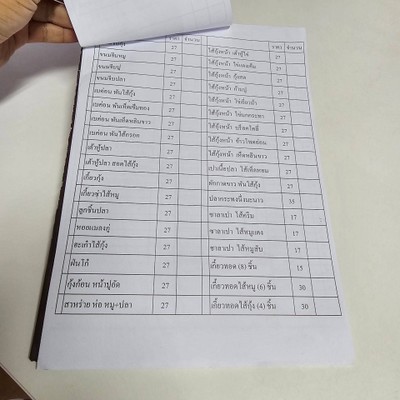 ราคา จำนวน ราคา จำนวน
กุ้ง 27 ไส้กุ้งหน้า เต้าหู้ไข่ 27
ขนมจีบหมู 27 ไส้กุ้งหน้า 27
ขนมจีบปู 27 ไส้กุ้งหน้า กุ้งสด 27
ขนมจีบปลา 27 ไส้กุ้งหน้า ก้ามปู 27
เบค่อน พันไส้กุ้ง 27 ไส้กุ้งหน้า ไข่เยี่ยวม้า 27
เบค่อน พันเห็ดเข็มทอง 27 ไส้กุ้งหน้า ไข่นกกระทา 27
เบค่อน พันเห็ดหลินขาว 27 ไส้กุ้งหน้า บร็อคโคลี่ 27
เบค่อน พันไส้กรอก 27 ไส้กุ้งหน้า ข้าวโพดอ่อน 27
เต้าหู้ปลา 27 ไส้กุ้งหน้า เห็ดหลินขาว 27
เต้าหู้ปลา สอดไส้กุ้ง 27 เปาเนื้อปลา ไส้เห็ดหอม 27
เกี๊ยวกุ้ง 27 ผักกาดขาว พันไส้กุ้ง 27
เกี๊ยวซ่าไส้หมู 27 ปลากระพงนึ่งมะนาว 35
ลูกชิ้นปลา 27 ซาลาเปา ไส้ครีม 17
หอยแมลงภู่ 27 ซาลาเปา ไส้หมูแดง 17
สะเก๋าไส้กุ้ง 27 ซาลาเปา ไส้หมูสับ 17
ฝันโก๋ 27 เกี๊ยวทอด (8) ชิ้น 15
กุ้งก้อน หน้าปูอัด 27 เกี๊ยวทอดไส้หมู (6) ชิ้น 30
สาหร่าย ห่อ หมู+ปลา 27 เกี๊ยวทอดไส้กุ้ง (4) ชิ้น 30